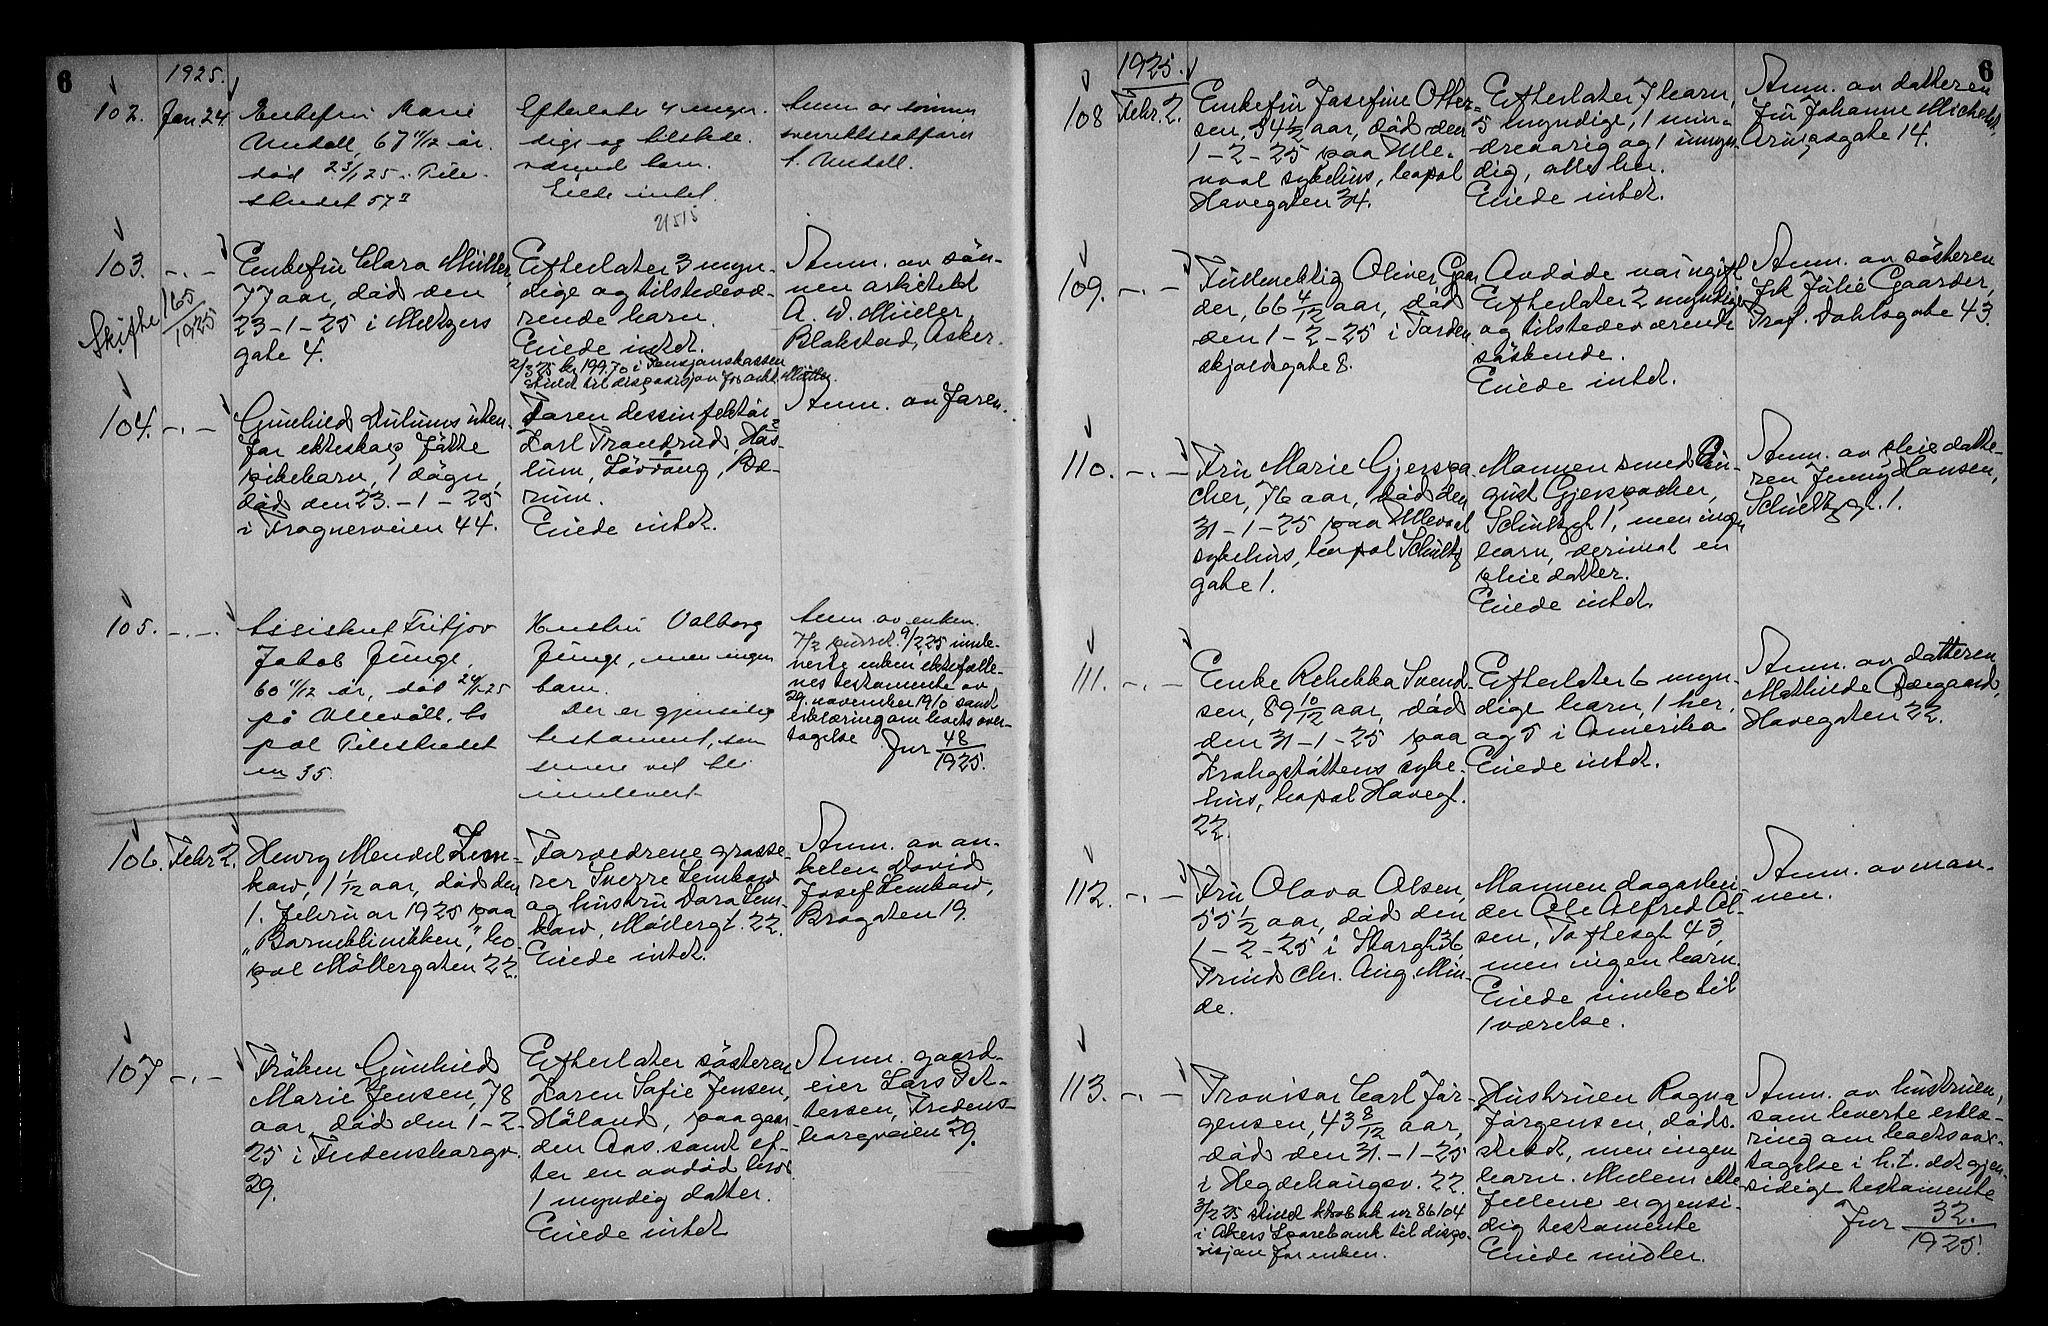 6
1925.
102.
Jan 24.
Enkefru Marie
Undall, 67 11/12 år.
død 23/1 25 i Pile-
stredet 57
Efterlater 4 myn-
dige og tilstede-
værende barn.
Eiede intet.
21515
Anm. av sønnen
overrettssakfører
Undall.
103.
-.-
Skifte 165/1925
Enkefru Clara Müller,
77 aar, død den
23-1-25 i Meltzers
gate 4.
Efterlater 3 myn-
dige og tilstedevæ-
rende barn.
Eiede intet.
2/3 25 kr 199.70 i Pensjonskassen
stillet til disposisjon for arkt. Müller.
Anm. av søn-
nen arkitekt
A. W. Müller,
Blakstad, Asker.
104.
-.-
Gunhild uten-
for ekteskap fødte
pikebarn, 1 døgn,
død den 23.-1-25
i Frognerveien 44.
Faren dessinfektør
Karl Trandrud, Has-
lum, Løvvang, Bæ-
rum.
Eiede intet.
Anm. av faren.
105.
-.-.
Assistent Fritjov
Jakob Junge,
60 11/12 år, død 24/1-25
på Ullevåll, bo
pæl Pilestredet
nr 35.
Hustru Valborg
Junge, men ingen
barn.
Der er gjensidig
testament, som
senere vil bli
innlevert
Anm. av enken.
7/2 purret. 9/2 25 innle-
verte enken ektefelle-
nes testamente av
29. november 1910 samt
erklæring om boets over-
tagelse
Jnr 48/1925.
106.
Febr 2.
Henry Mendel Lem-
kow, 1 1/12 aar, død den
1. februar 1925 paa
"Barneklinikken", bo-
pæl Møllergaten 22.
Forældrene grosse-
rer Sverre Lemkow
og hustru Dora Lem-
kow, Møllergt. 22.
Eiede intet.
Anm. av on-
kelen David
Josef Lemkow,
Brogaten 19.
107
-.-
Frøken Gunhild
Marie Jensen, 78
aar, død den 1-2-
25 i Fredensborgv.
29.
Efterlater søsteren
Karen Sofie Jensen,
Høland, paa gaar
den Aas samt ef-
ter en avdød bror
1 myndig datter.
Eiede intet
Anm. gaard-
eier Lars Pet-
tersen, Fredens-
borgveien 29.
6
1925.
108
Febr. 2.
Enkefru Josefine Otter-
sen, 54 1/2 aar, død den
1-2-25 paa Ulle-
vaal sykehus, bopæl
Havegaten 34.
Efterlater 7 barn,
5 myndige, 1 min-
dreaarig og 1 umyn
dig, alle her.
Eiede intet.
Anm. av datteren
fru Johanne Michelet,
Arupsgate 14.
109.
-.-
Fuldmektig Oliver Gaar
der, 66 4/12 aar, død
den 1-2-25 i Torden
skjoldsgate 8.
Avdøde var ugift.
Efterlater 2 myndige
og tilstedeværende
søskende.
Eiede intet.
Anm. av søsteren
frk Julie Gaarder,
Prof. Dahlsgate 43.
110.
-.-
Fru Marie Gjerspa
cher, 76 aar, død den
31-1-25 paa Ullevaal
sykehus, bopæl Schultz
gate 1.
Mannen smed Au-
gust Gjerspacher,
Schultzgt 1, men ingen
barn, derimot en
pleiedatter.
Eiede intet.
Anm. av pleiedatte-
ren Jenny Hansen,
Schultzgt. 1.
111.
-.-
Enke Rebekka Svend-
sen, 89 10/12 aar, død
den 31-1-25 paa
Krohgstøttens syke-
hus, bopæl Havegt.
22.
Efterlater 6 myn-
dige barn, 1 her,
og 5 i Amerika
Eiede intet.
Anm. av datteren
Mathilde
Havegaten 22.
112.
-.-
Fru Olava Olsen,
55 1/2 aar, død den
1-2-25 i Storgt 36,
Prinds Chr. Aug. Min-
de.
Mannen dagarbei
der Ole Alfred Ol-
sen, Toftesgt 43,
men ingen barn.
Eiede innbo til
1 værelse.
Anm. av man-
nen.
113.
-.-
Provisor Carl Jør-
gensen, 43 8/12 aar,
død den 31.-1-25
i Hegdehaugsv. 22.
3/2 25 stillet bok nr 86104
i Akers Sparebank til dispo-
sisjon for enken.
Hustruen Ragna
Jørgensen, døds-
stedet, men ingen
barn. Mellem ekte
fellene er gjensi-
dig testamente
Eiede midler.
Anm. av hustruen,
som leverte erklæ-
ring om boets over-
tagelse i h.t. det gjen-
sidige testamente
Jnr 32./1925.